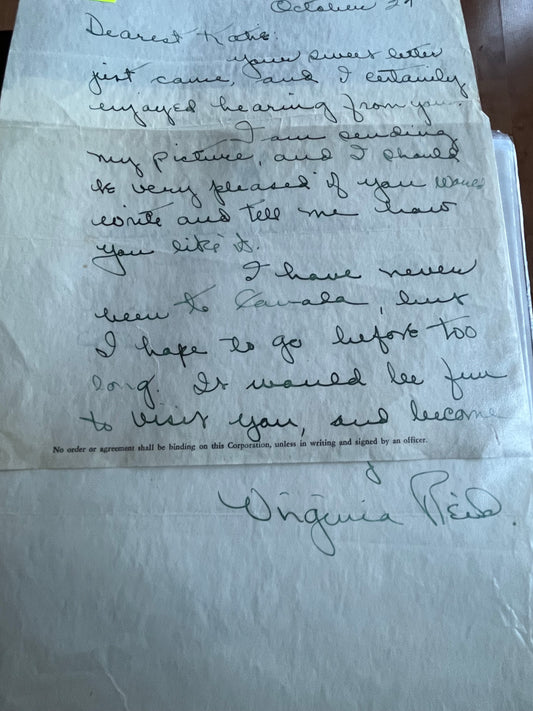 October 29
Dearest Katie:
Your sweet letter
just came, and I certainly
enjoyed hearing from you.
I am sending
my picture, and I should
be very pleased if you would
write and tell me how
you like it.
I have never
been to Canada, but
I hope to go before too
long. It would be fun
to visit you, and become
No order or agreement shall be binding on this Corporation, unless in writing and signed by an officer.
Virginia Reid.